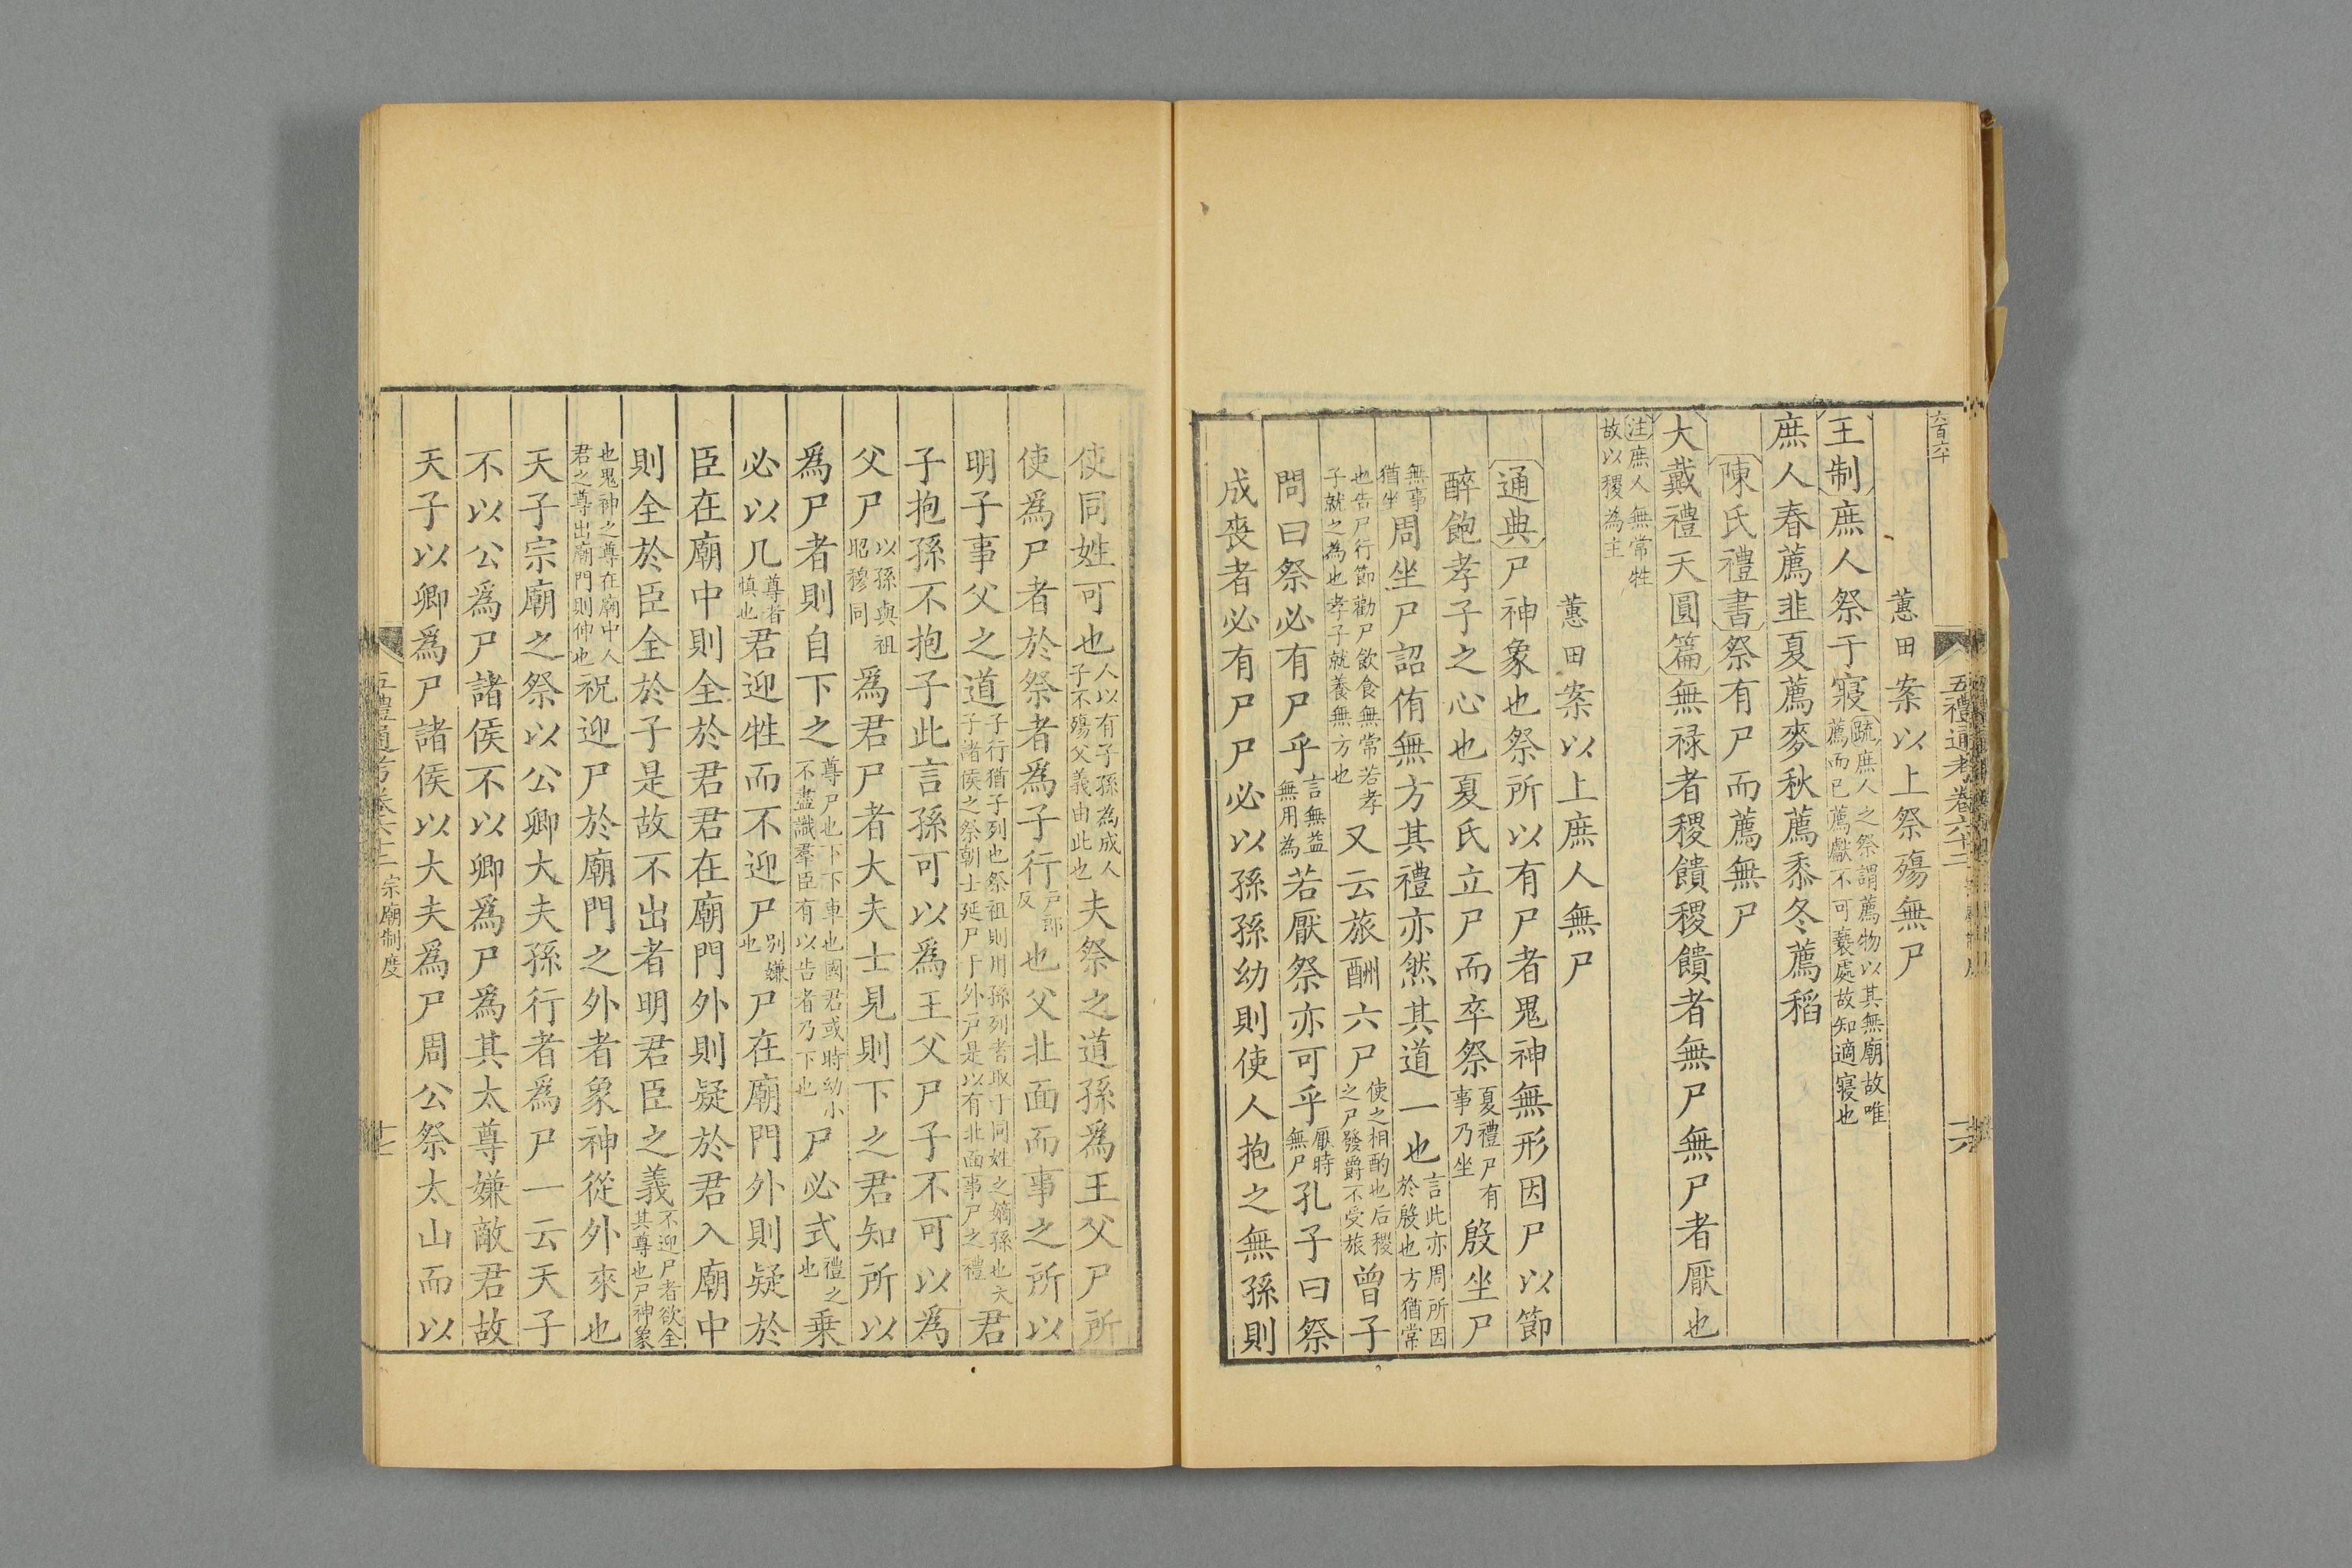 六百六十
五禮通考卷六十二
蕙田案以上祭殤無尸
王制庶人祭于寢疏庶人之祭謂薦物以其無廟故唯薦而已薦獻不可褻處故知適寢也
庶人春薦韭夏薦麥秋薦黍冬薦稻
陳氏禮書祭有尸而薦無尸
大戴禮天圓篇無祿者稷饋稷饋者無尸無尸者厭也
注庶人無常牲故以稷為主
蕙田案以上庶人無尸
通典尸神象也祭所以有尸者鬼神無形因尸以節
醉飽孝子之心也夏氏立尸而卒祭夏禮尸有事乃坐殷坐尸
無事猶坐周坐尸詔侑無方其禮亦然其道一也言此亦周所因於殷也方猶常
也告尸行節勸尸飲食無常若孝子就之為也孝子就養無方也又云旅酬六尸使之相酌也后稷之尸發爵不受旅曾子
問曰祭必有尸乎言無益無用為若厭祭亦可乎厭時無尸孔子曰祭
成喪者必有尸尸必以孫孫幼則使人抱之無孫則
使同姓可也人以有子孫為成人子不殤父義由此也夫祭之道孫爲王父尸所
使爲尸者於祭者爲子行戶郎反也父北面而事之所以
明子事父之道子行猶子列也祭祖則用孫列者取于同姓之嫡孫也天子諸侯之祭朝士延尸于外戶是以有北面事尸之禮君
子抱孫不抱子此言孫可以爲王父尸子不可以爲
父尸以孫與祖昭穆同爲君尸者大夫士見則下之君知所以
爲尸者則自下之尊尸也下下車也國君或時幼小不盡識羣臣有以告者乃下也尸必式禮之也乗
必以几尊者慎也君迎牲而不迎尸別嫌也尸在廟門外則疑於
臣在廟中則全於君君在廟門外則疑於君入廟中
則全於臣全於子是故不出者明君臣之義不迎尸者欲全其尊也尸神象
也鬼神之尊在廟中人君之尊出廟門則伸也祝迎尸於廟門之外者象神從外來也
天子宗廟之祭以公卿大夫孫行者爲尸一云天子
不以公爲尸諸侯不以卿爲尸爲其太尊嫌敵君故
天子以卿爲尸諸侯以大夫爲尸周公祭太山而以
五禮通考卷六十二 宗廟制度